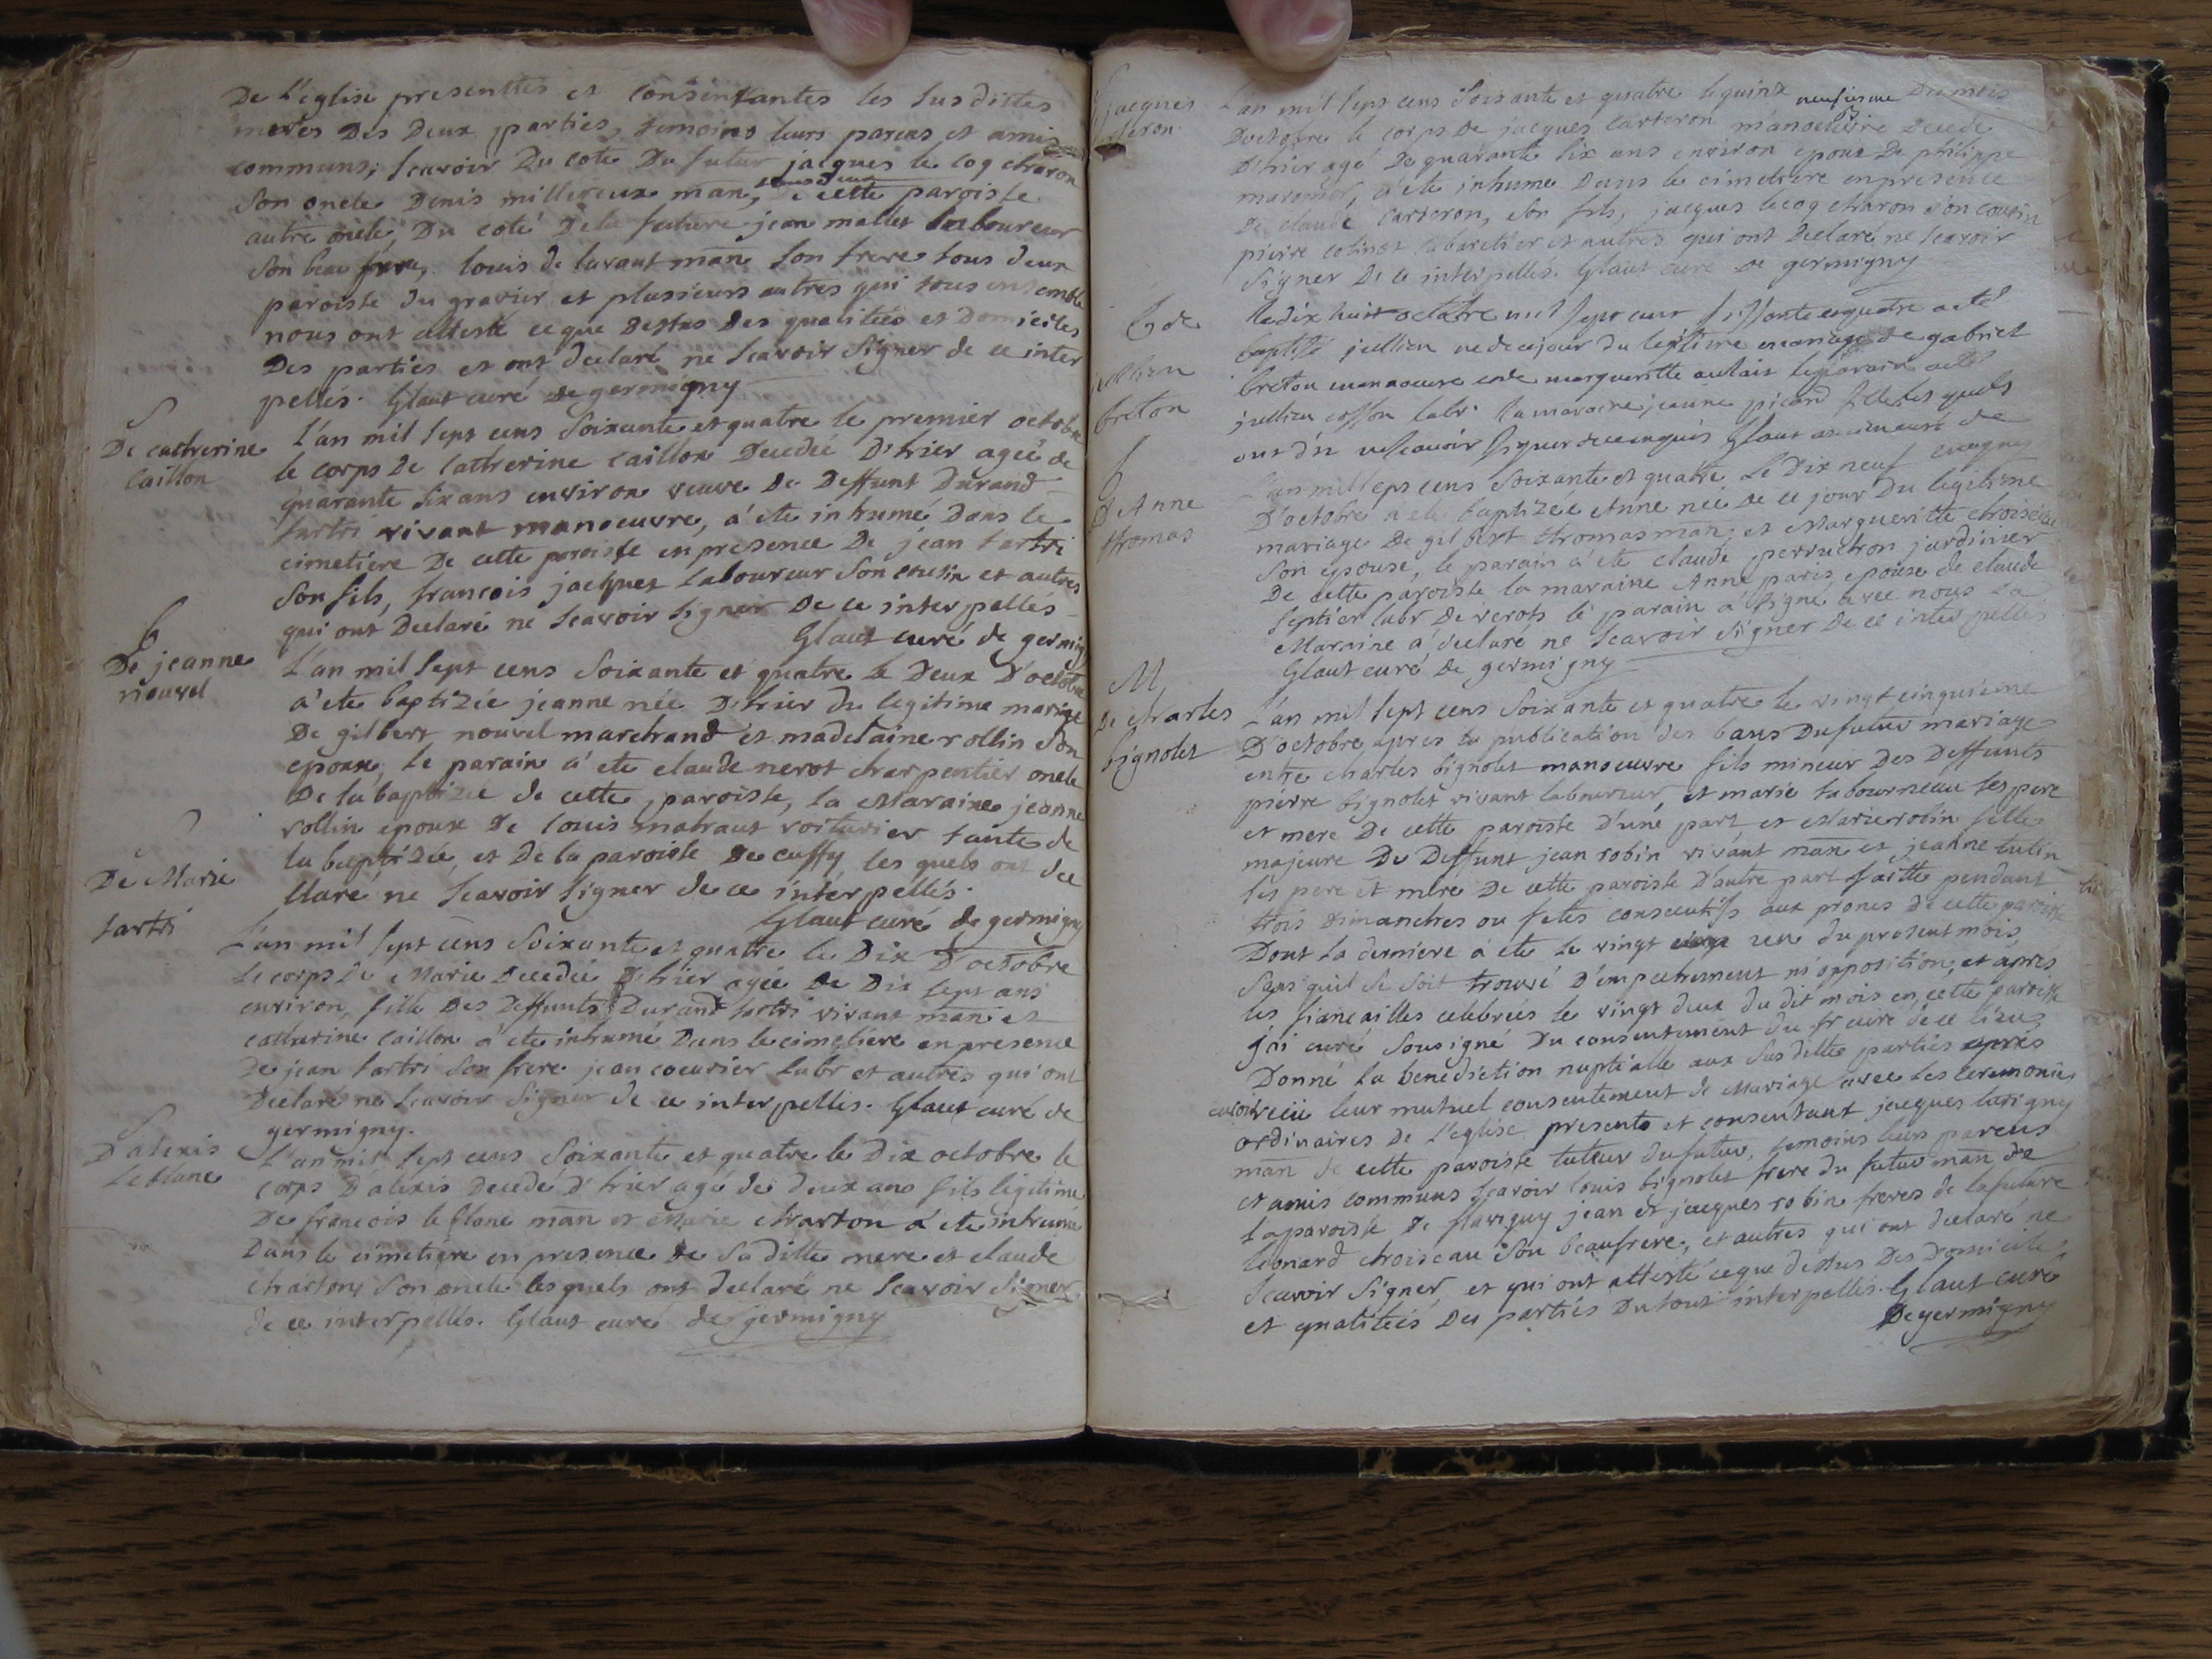 De L'eglise presenttes et consentantes les susdittes
meres Des Deux parties, temoins leurs parens et amis
communs; scavoir Du cote Du futur jacques le coq charon
son oncle Denis millereux man, tous deux de cette paroisse
autre oncle, Du coté De la future jean mallet laboureur
son beau frere, louis de lavant man son frere tous deux
paroisse du gravier et plusieurs autres qui tous ensemble
nous ont attesté ce que dessus Des qualitées et Domiciles
Des parties et ont declaré ne scavoir signer de ce inter
pellés. Glaut curé de germigny
S
De catherine
caillon
L'an mil sept cens soixante et quatre le premier octobre
le corps De catherine caillon Decedée D'hier agée de
quarante six ans environ veuve De Deffunt Durand
tartri vivant manoeuvre, a été inhumé Dans le
cimetiere De cette paroisse en presence De jean tartri
son fils, francois jacques laboureur son cousin et autres
qui ont Declaré ne scavoir signer De ce interpellés
Glaut curé de germigny
b
De jeanne
nouvel
L'an mil sept cens soixante et quatre le Deux D'octobre
a été baptizée jeanne née D'hier du legitime mariage
De gilbert nouvel marchand et madelaine rollin son
epouse, le parain a été claude nerot charpentier oncle
De la baptizée de cette paroisse, la Maraine jeanne
rollin epouse De louis mahaut voiturier tante de
la baptizée, et De la paroisse De cuffy les quels ont dec
llaré ne scavoir signer de ce interpellés.
Glaut curé de germigny
S
De Marie
tartri
L'an mil sept cens soixante et quatre le Dix D'octobre
le corps de Marie Decedée D'hier agée De Dix sept ans
environ fille Des Deffunts Durand tartri vivant man et
catherine caillon a été inhumé Dans le cimetiere en presence
De jean tartri son frere jean coeurier labr et autres qui ont
Declaré ne scavoir signer de ce interpellés. Glaut curé de
germigny.
S
D'alexis
leblanc
L'an mil sept cens soixante et quatre le Dix octobre le
corps D'alexis Decedé D'hier agé de deux ans fils legitime
De francois leblanc man et Marie charton a été inhumé
Dans le cimetiere en presence De sa ditte mere et claude
charton son oncle lesquels ont declaré ne scavoir signer
de ce interpellés. Glaut curé de germigny
jacques
carteron
L'an mil sept cens soixante et quatre le quinz neufieme Du mois
D'octobre le corps De jacques carteron manoeuvre Decedé
D'hier agé De quarante six ans environ epoux De philippe
a été inhumé Dans le cimetiere en presence
De claude carteron, son fils, jacques lecoq charon son cousin
pierre colinot cabaretier et autres qui ont Declaré ne scavoir
signer De ce interpellés. Glaut curé De germigny
b de
jullien
breton
Le dix huit octobre mil sept cens soissante et quatre a été
baptisé jullien né de ce jour du legitime mariage de gabriel
breton manoeuvre et de margueritte aulait le parain a été
jullien cosson labr. la maraine jeanne picard fille lesquels
ont dit ne scavoir signer de ce enquis Glaut curé de
germigny
b
D'Anne
thomas
L'an mil sept cens soixante et quatre Le Dix neuf
D'octobre a eté baptizée Anne née de ce jour Du legitime
mariage De gilbert thomas man, et Margueritte choiseau
son epouse, le parain a été claude perruchon jardinier
De cette paroisse la maraine Anne paris epouse de claude
septier labr De verots le parain a signé avec nous La
Maraine a declaré ne scavoir signer De ce interpellés
Glaut curé De germigny
M
De charles
bignolet
L'an mil sept cens soixante et quatre le vingt cinquieme
D'octobre, apres la publication des bans Du futur mariage
entre charles bignolet manoeuvre fils mineur Des Deffunts
pierre bignolet vivant laboureur, et marie labourneau ses pere
et mere De cette paroisse D'une part et Marie robin fille
majeure De Deffunt jean robin vivant man et jeanne lutin
ses pere et mere De cette paroisse D'autre part faitte pendant
trois Dimanches ou fetes consecutifs aux prones De cette paroisse
Dont la derniere a été le vingt un du present mois
sans quil se soit trouvé D'empechement ni opposition, et apres
les fiancailles celebrées le vingt deux du dit mois en cette paroisse
j'ai curé sousigné Du consentement du sr curé de ce lieu
Donné la benediction nuptialle aux susdittes parties apres
avoir recu leur mutuel consentement de Mariage avec les ceremonies
ordinaires De L'eglise presents et consentant jacques lavigny
man de cette paroisse tuteur du futur, temoins leurs parens
et amis communs scavoir louis bignolet frere du futur man de
la paroisse De flavigny jean et jacques robin freres de la future
leonard choiseau son beaufrere, et autres qui ont declaré ne
scavoir signer, et qui ont attesté ce que dessus Des Domiciles
et qualitées Des parties Du tout interpellés. Glaut curé
De germigny